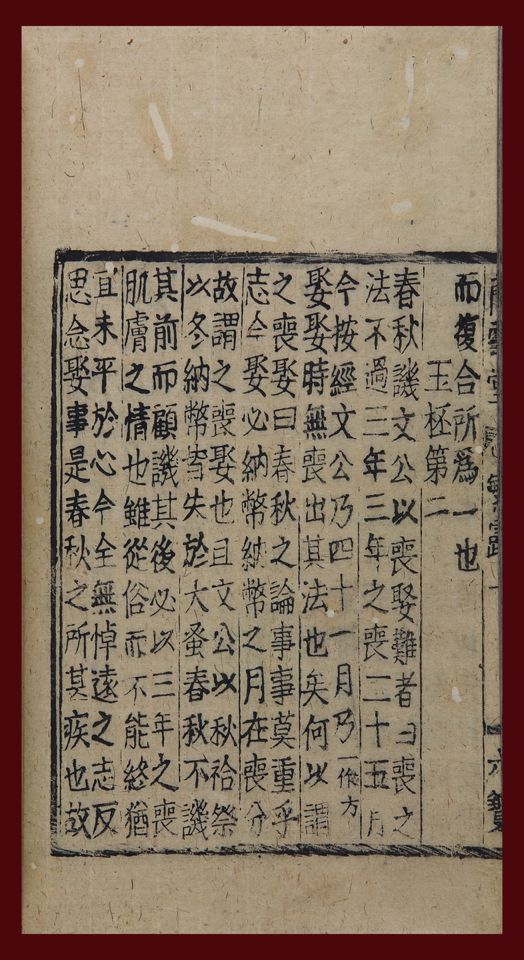 而復合所爲一也
玉柸第二
春秋譏文公以喪娶難者曰喪之
法不過三年三年之喪二十五月
今按經文公乃四十一月乃一作方
娶娶時無喪出其法也矣何以謂
之喪娶曰春秋之論事事莫重乎
志今娶必納幣納幣之月在喪分
故謂之喪娶也且文公以秋祫祭
以冬納幣皆失於大蚤春秋不譏
其前而顧譏其後必以三年之喪
肌膚之情也雖從俗而不能終猶
宜未平於心今全無悼遠之志反
思念娶事是春秋之所甚疾也故